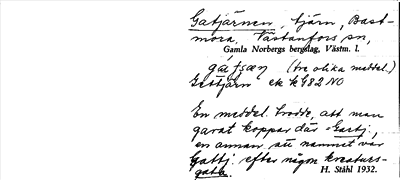 Gatjärnen, tjärn, Bast-
mora, Västanfors sn,
Gamla Norbergs bergslag, Västm. l.
(tre olika meddel.)
Gettjärn ek k 982 NO
En meddel. trodde, att man
garat koppar där = Gartj.,
en annan att namnet var
Gattj. efter någon kreaturs-
gata.
H. Ståhl 1932.